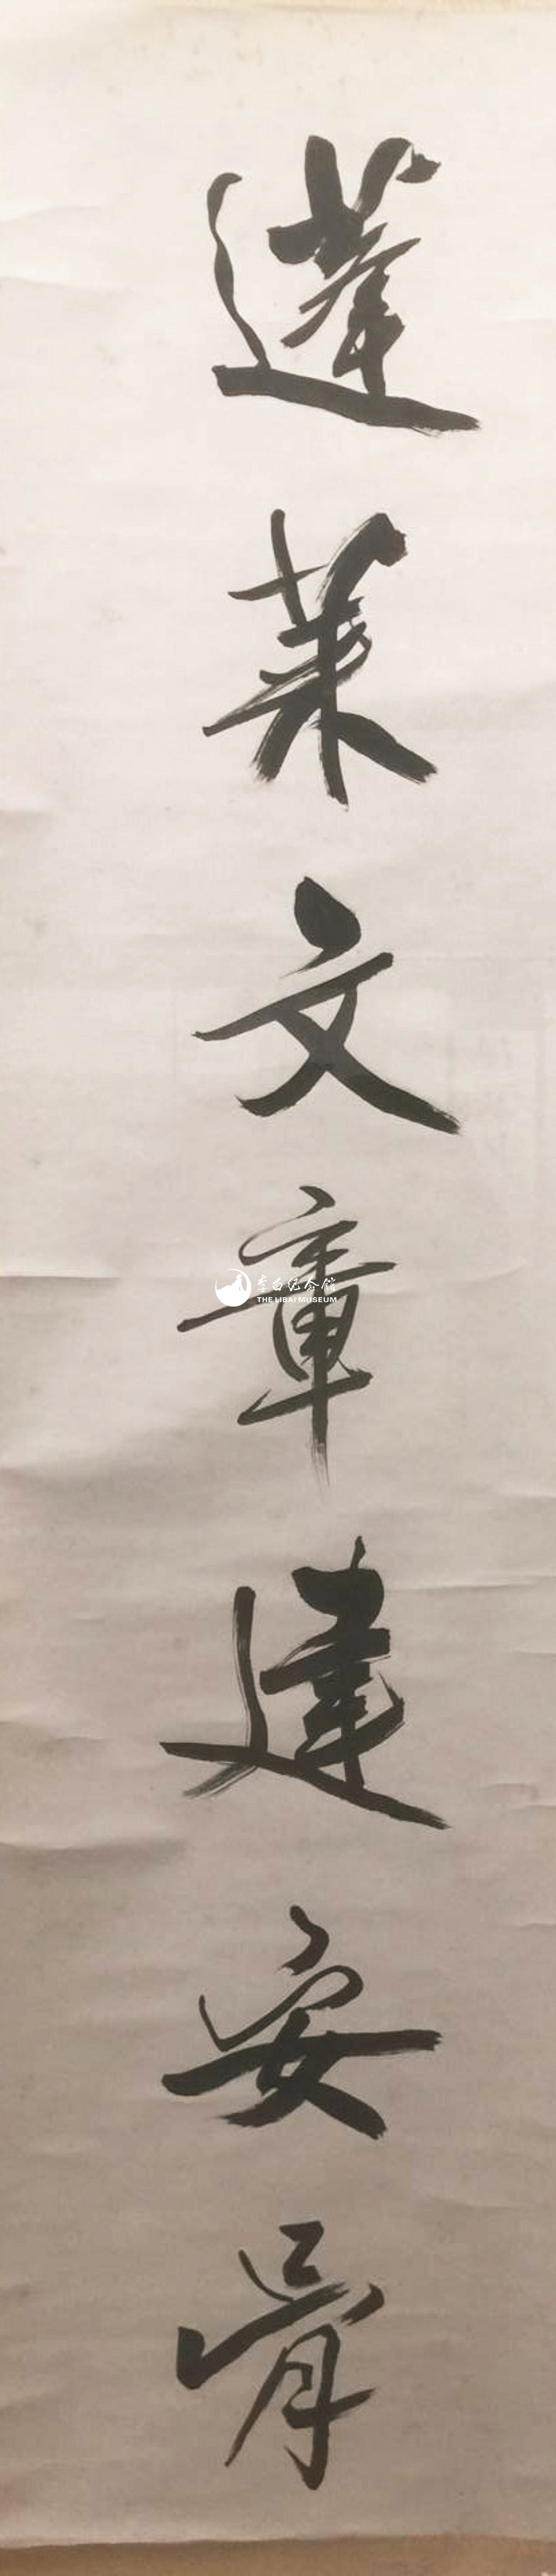 蓬莱文章建安骨
李白纪念馆
THE LIBAI MUSEUM